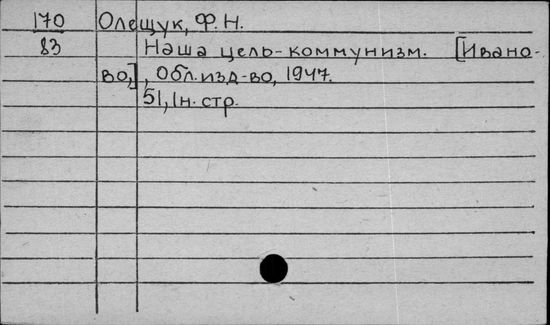 170 Олещук, Ф.Н.
83 Наша цель-коммунизм. [Ивано-
во,], Обл.изд-во, 1947.
51,1н. стр.